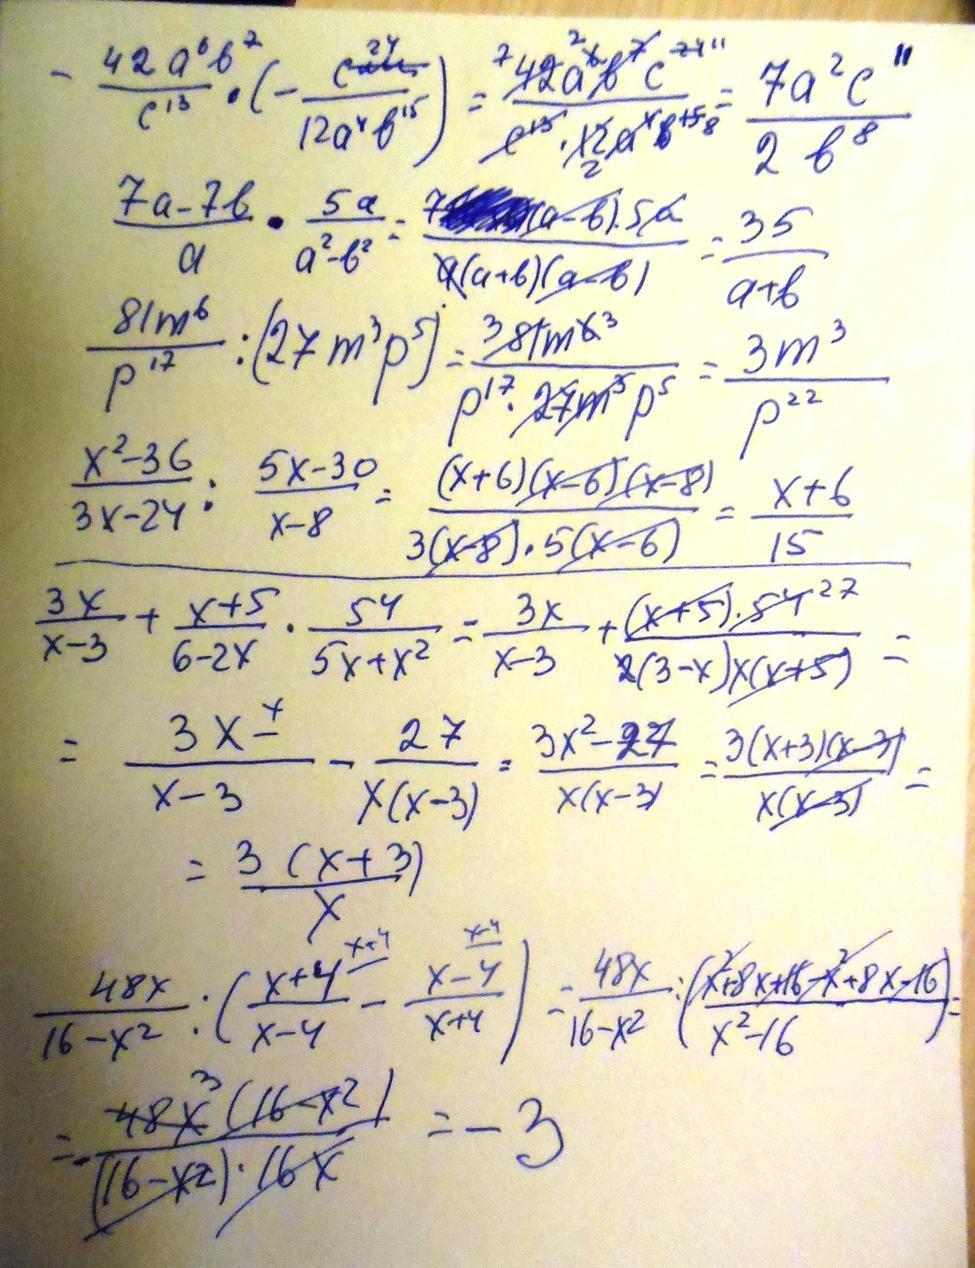 - 42a⁶b⁷/c¹³ · (- c²⁴/12a⁴b¹⁵) = 42a⁶b⁷c²⁴ ¹¹/c¹³·12a⁴b¹⁵ ⁸ = 7a²c¹¹/2b⁸
7a-7b/a · 5a/a²-b² = 7(a-b)·5a/a(a+b)(a-b) = 35/a+b
81m⁶/p¹⁷ : (27m³p⁵) = 81m⁶ ³/p¹⁷·27m³p⁵ = 3m³/p²²
x²-36/3x-24 : 5x-30/x-8 = (x+6)(x-6)(x-8)/3(x-8)·5(x-6) = x+6/15
3x/x-3 + x+5/6-2x · 54/5x+x² = 3x/x-3 + (x+5)·54 ²⁷/2(3-x)x(x+5) =
= 3x ˣ/x-3 - 27/x(x-3) = 3x²-27/x(x-3) = 3(x+3)(x-3)/x(x-3) =
= 3(x+3)/x
48x/16-x² : (x+4 ˣ⁺⁴/x-4 - x-4 ˣ⁻⁴/x+4) = 48x/16-x² : (x²+8x+16-x²+8x-16/x²-16) =
= - 48x ³(16-x²)/(16-x²)·16x = -3